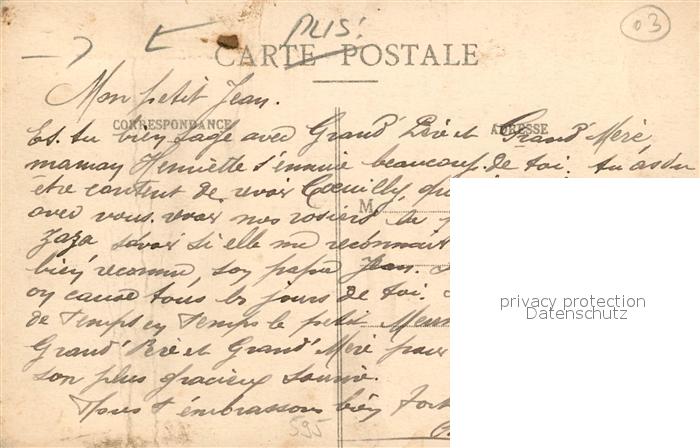 03
PLIS!
CARTE POSTALE
Mon petit Jean.
CORRESPONDANCE
ADRESSE
Es. tu bien sage avec Grand' Père et Grand' Mère,
maman Henriette s'ennuie beaucoup de toi. tu as du
être content de revoir Coeuilly,
M
avec vous. revoir nos rosiers
Zaza savoir si elle me reconnait
bien reconnu, son papa Jean.
on cause tous les jours de toi.
de temps en temps le petit
Grand' Père et Grand' Mère pour
son plus gracieux sourire.
Nous t'embrassons bien fort
595
privacy protection
Datenschutz